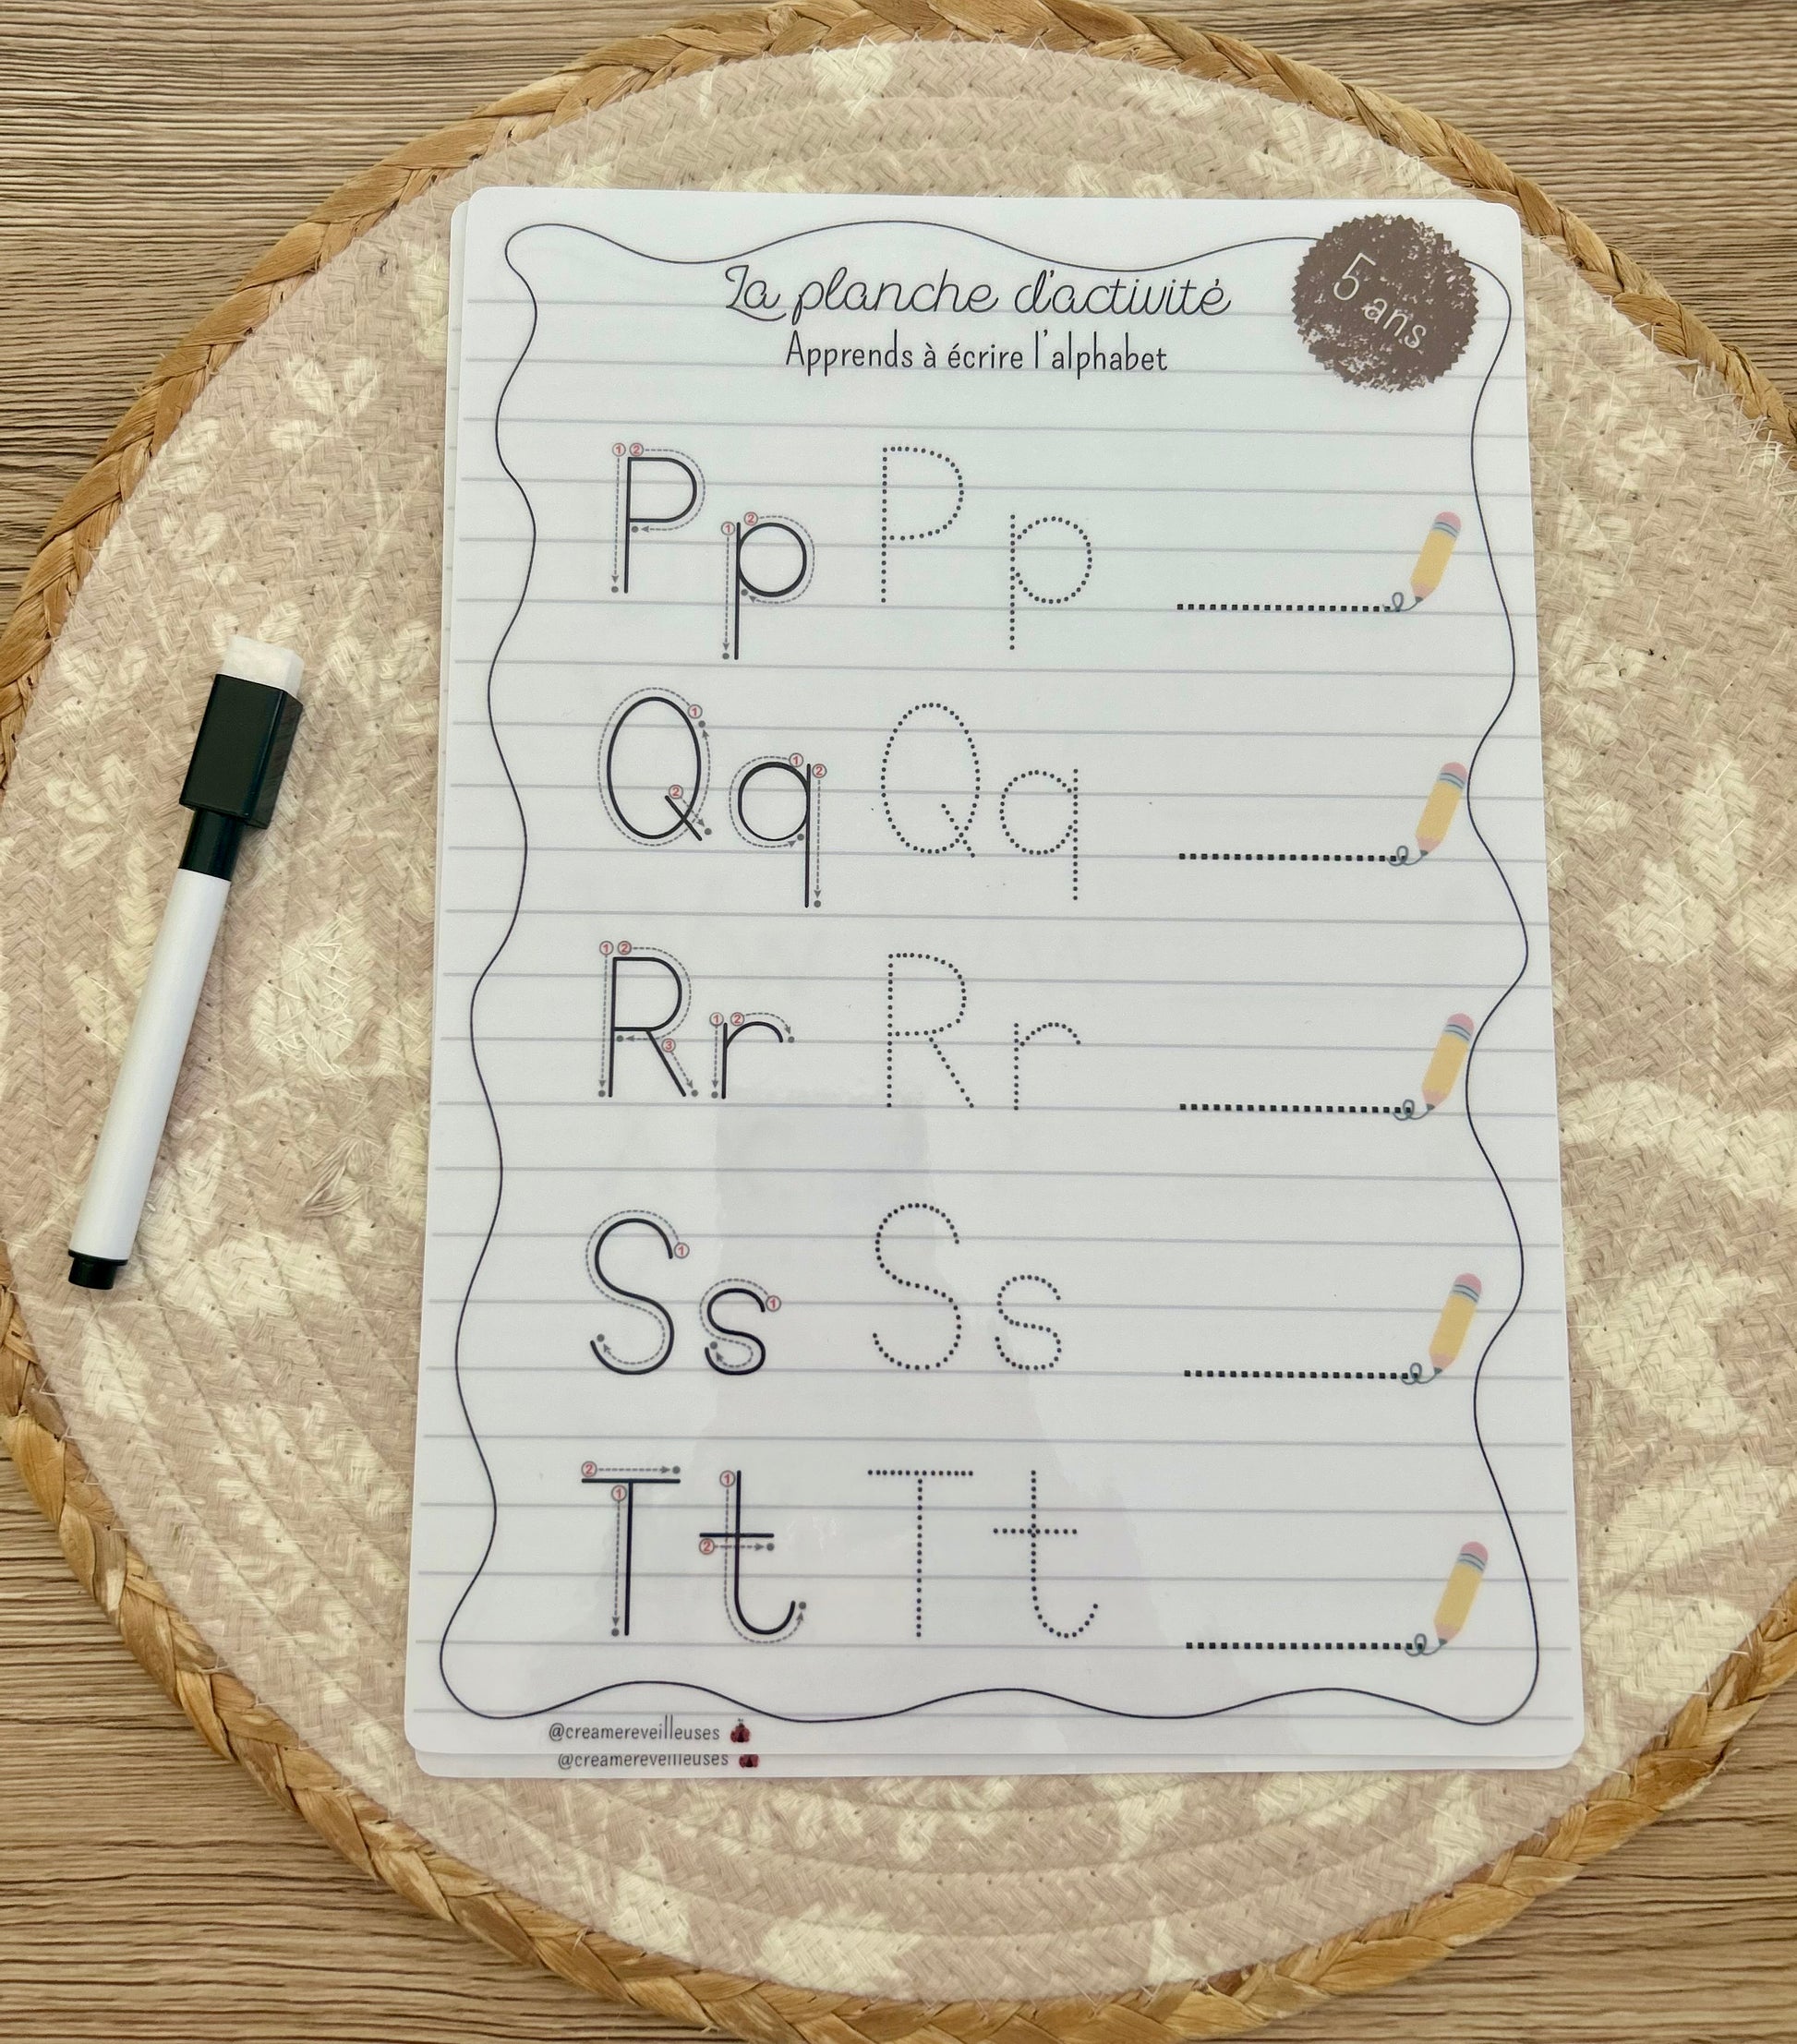 La planche d'activité
5 ans
Apprends à écrire l'alphabet
1 2 P 1 2 p P p
Q 1 2 q 1 2 Q q
1 2 R 3 1 2 r R r
S 1 s 1 S s
2 T 1 1 t 2 T t
@creamereveilleuses
@creamereveilleuses